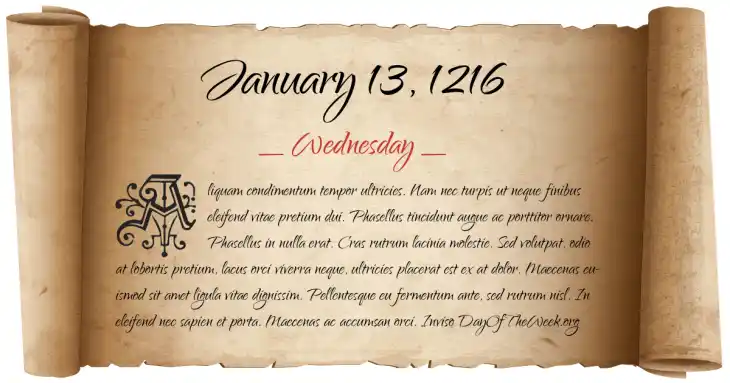 January 13, 1216
— Wednesday —
Aliquam condimentum tempor ultricies. Nam nec turpis ut neque finibus
eleifend vitae pretium dui. Phasellus tincidunt augue ac porttitor ornare.
Phasellus in nulla erat. Cras rutrum lacinia molestie. Sed volutpat, odio
at lobortis pretium, lacus orci viverra neque, ultricies placerat est ex at dolor. Maecenas eu-
ismod sit amet ligula vitae dignissim. Pellentesque eu fermentum ante, sed rutrum nisl. In
eleifend nec sapien et porta. Maecenas ac accumsan orci. Invise DayOfTheWeek.org